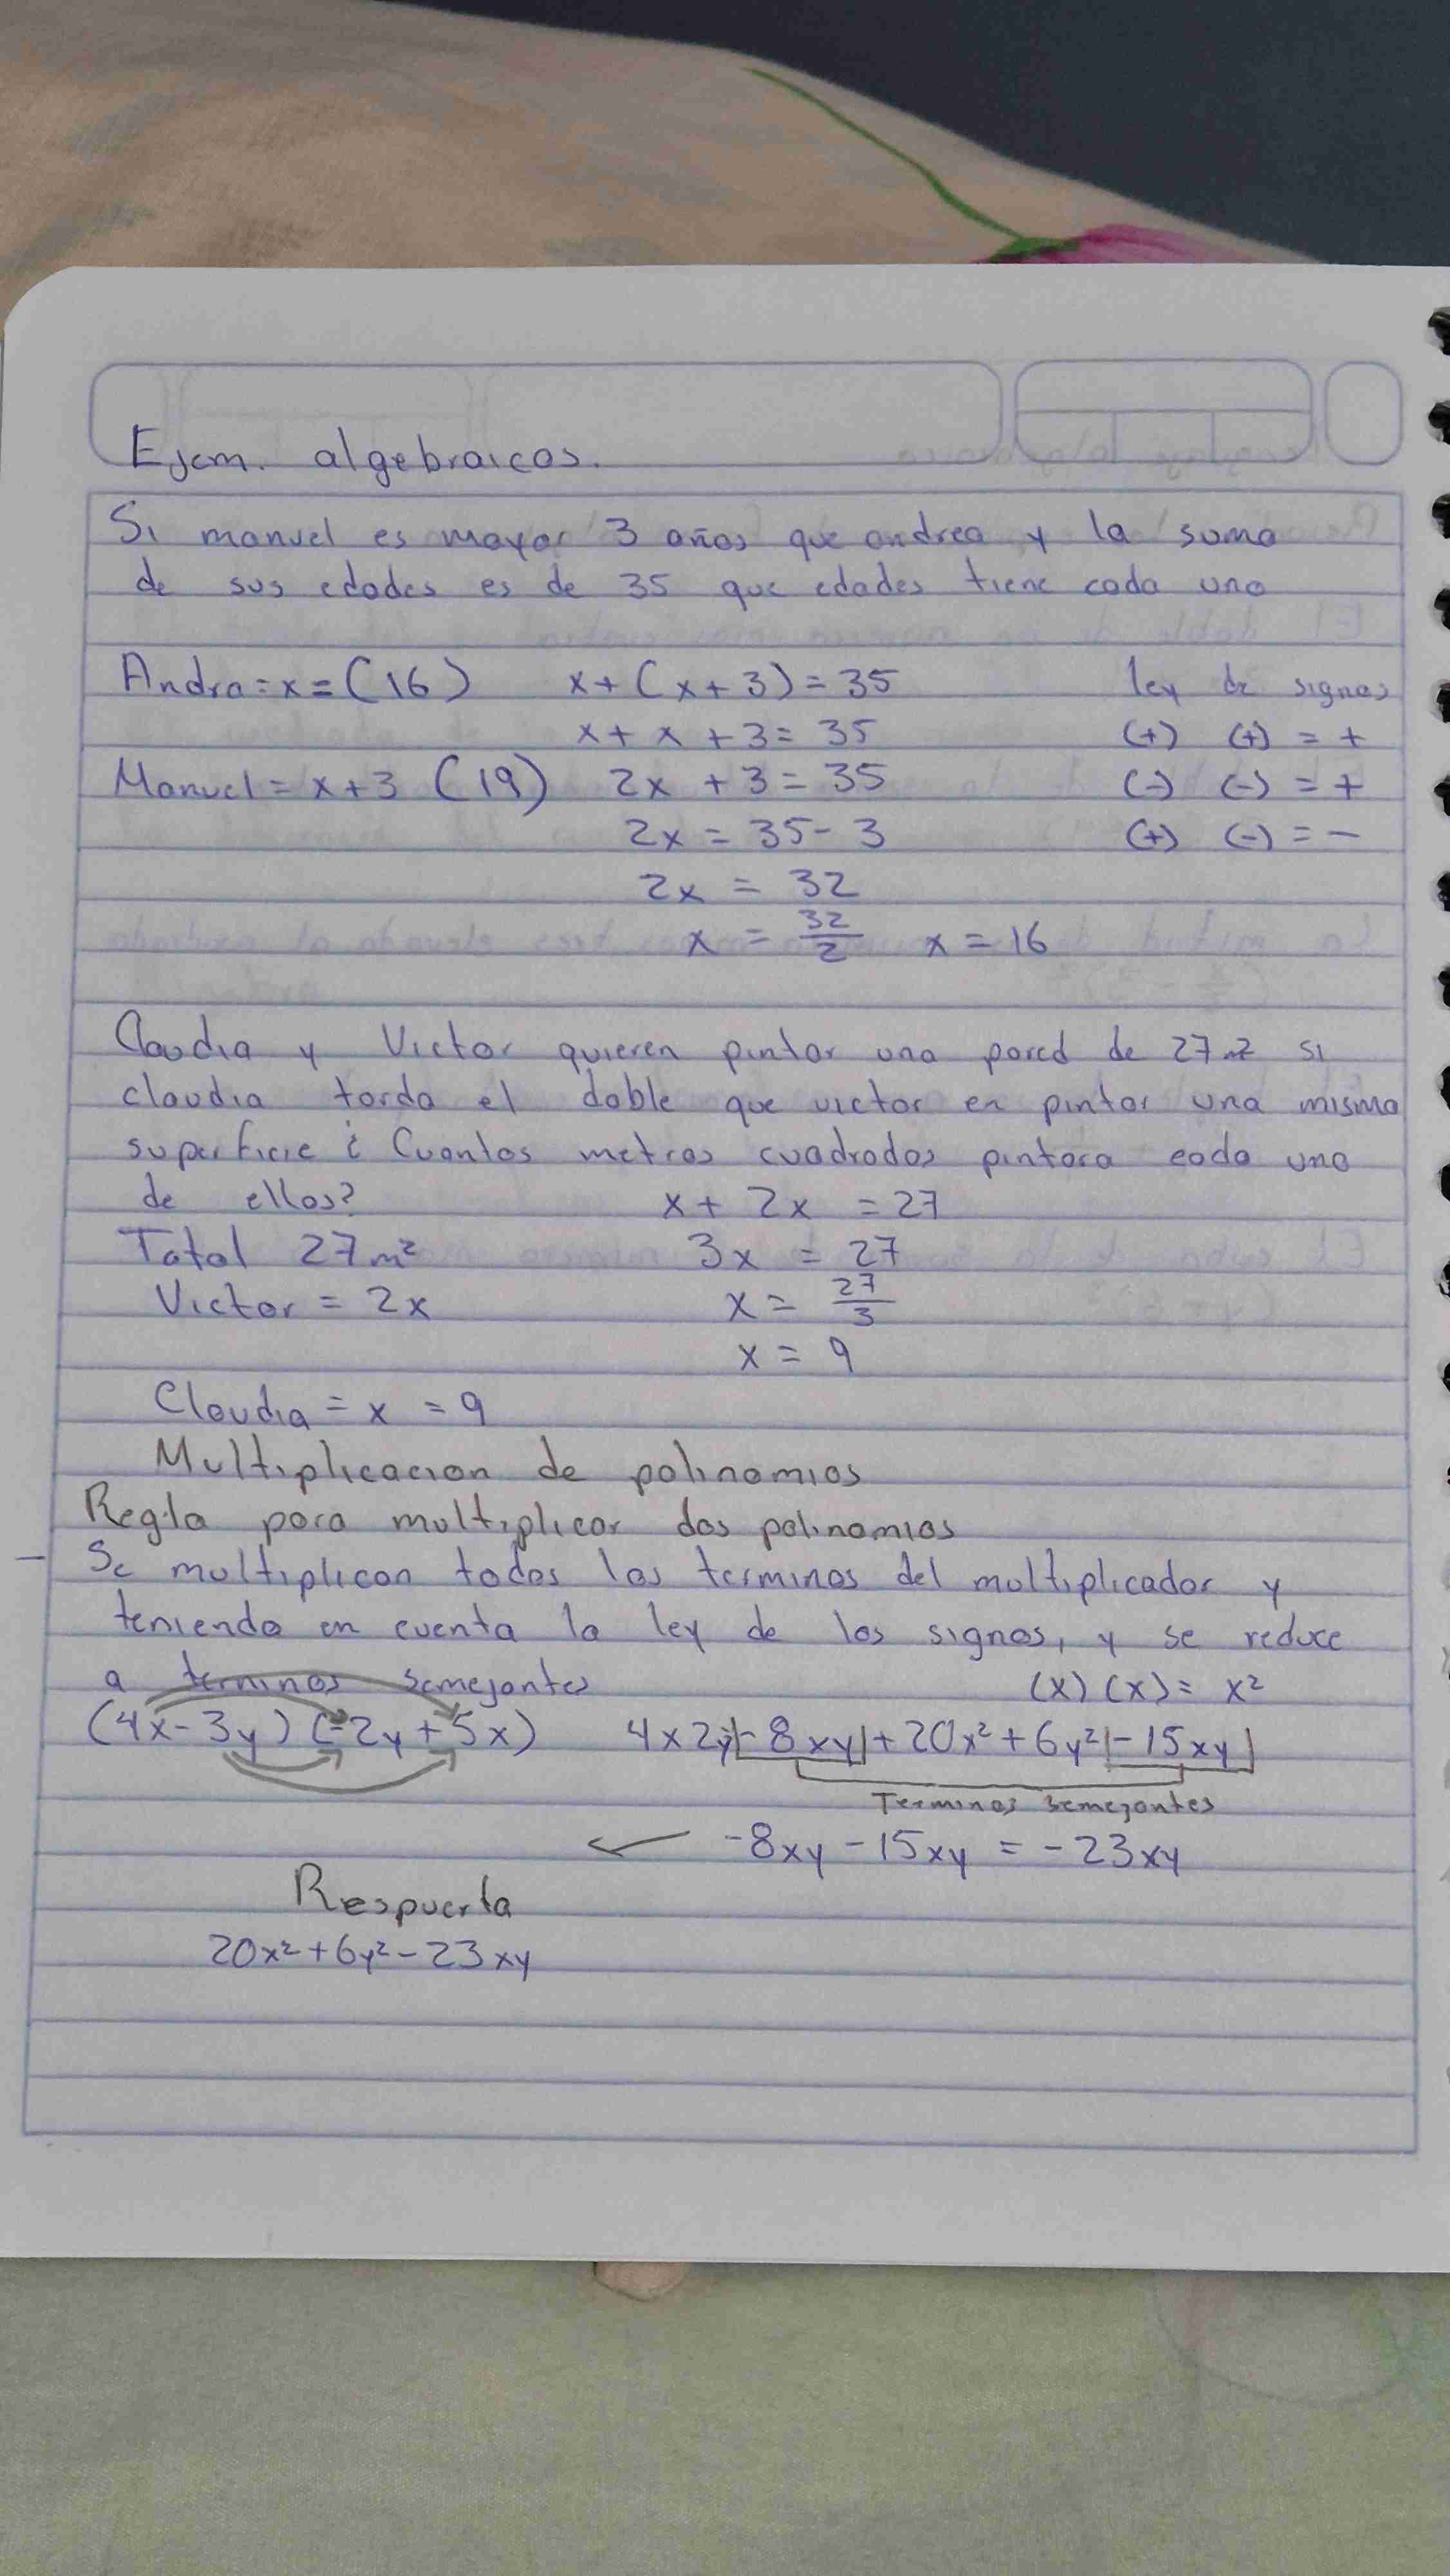 Ejem. algebraicos.
Si manuel es mayor 3 años que andrea y la suma
de sus edades es de 35 que edades tiene cada uno
Andra = x = (16) x + (x + 3) = 35 ley de signos
x + x + 3 = 35 (+) (+) = +
Manuel = x + 3 (19) 2x + 3 = 35 (-) (-) = +
2x = 35 - 3 (+) (-) = -
2x = 32
x = 32/2 x = 16
Claudia y Victor quieren pintar una pared de 27m² si
claudia tarda el doble que victor en pintar una misma
superficie ¿ Cuantos metros cuadrados pintara cada uno
de ellos? x + 2x = 27
Total 27m² 3x = 27
Victor = 2x x = 27/3
x = 9
Claudia = x = 9
Multiplicacion de polinomios
Regla para multiplicar dos polinomios
- Se multiplican todos los terminos del multiplicador y
teniendo en cuenta la ley de los signos, y se reduce
a terminos semejantes (x) (x) = x²
(4x - 3y) (-2y + 5x) 4x2y - 8xy + 20x² + 6y² - 15xy
Terminos semejantes
-8xy - 15xy = -23xy
Respuesta
20x² + 6y² - 23xy